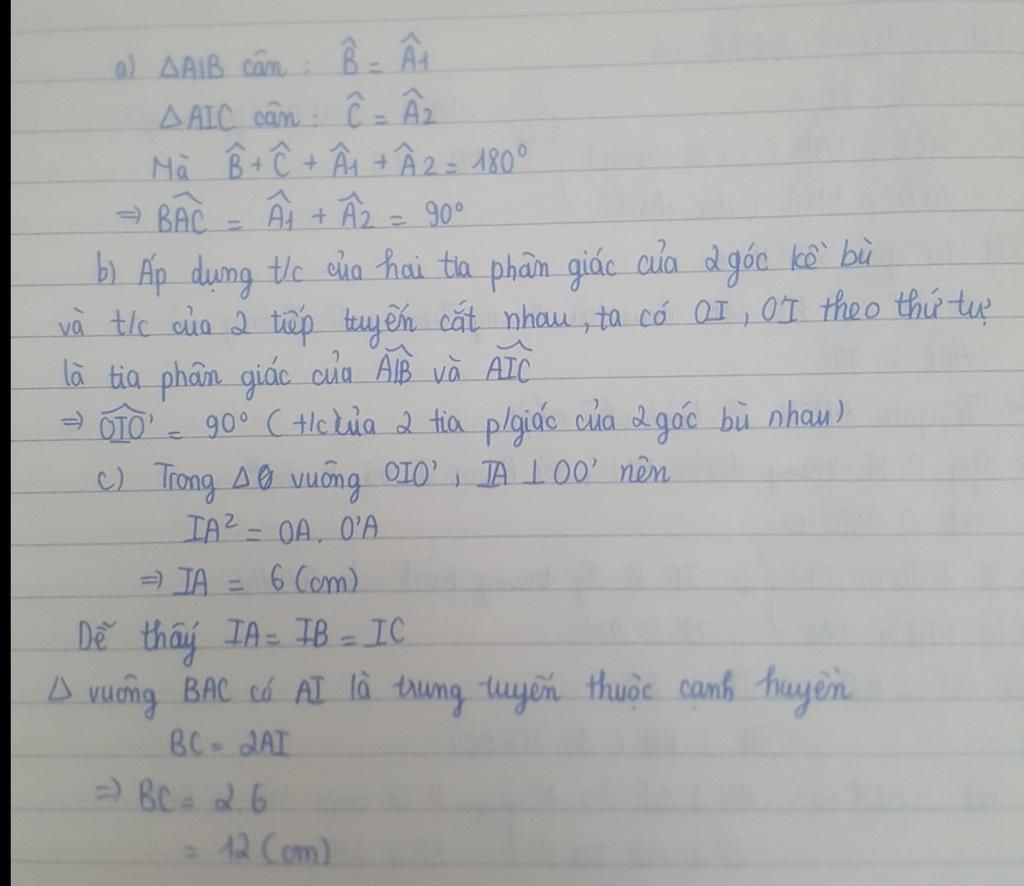 a) ΔAIB cân : B̂ = Â1
ΔAIC cân : Ĉ = Â2
Mà B̂ + Ĉ + Â1 + Â2 = 180°
⇒ BÂC = Â1 + Â2 = 90°
b) Áp dụng t/c của hai tia phân giác của 2 góc kề bù
và t/c của 2 tiếp tuyến cắt nhau, ta có OI, O'I theo thứ tự
là tia phân giác của AÎB và AÎC
⇒ OÎO' = 90° (t/c của 2 tia p/giác của 2 góc bù nhau)
c) Trong Δ vuông OIO', IA ⊥ OO' nên
IA² = OA. O'A
⇒ IA = 6 (cm)
Dễ thấy IA = IB = IC
Δ vuông BAC có AI là trung tuyến thuộc cạnh huyền
BC = 2AI
⇒ BC = 2.6
= 12 (cm)